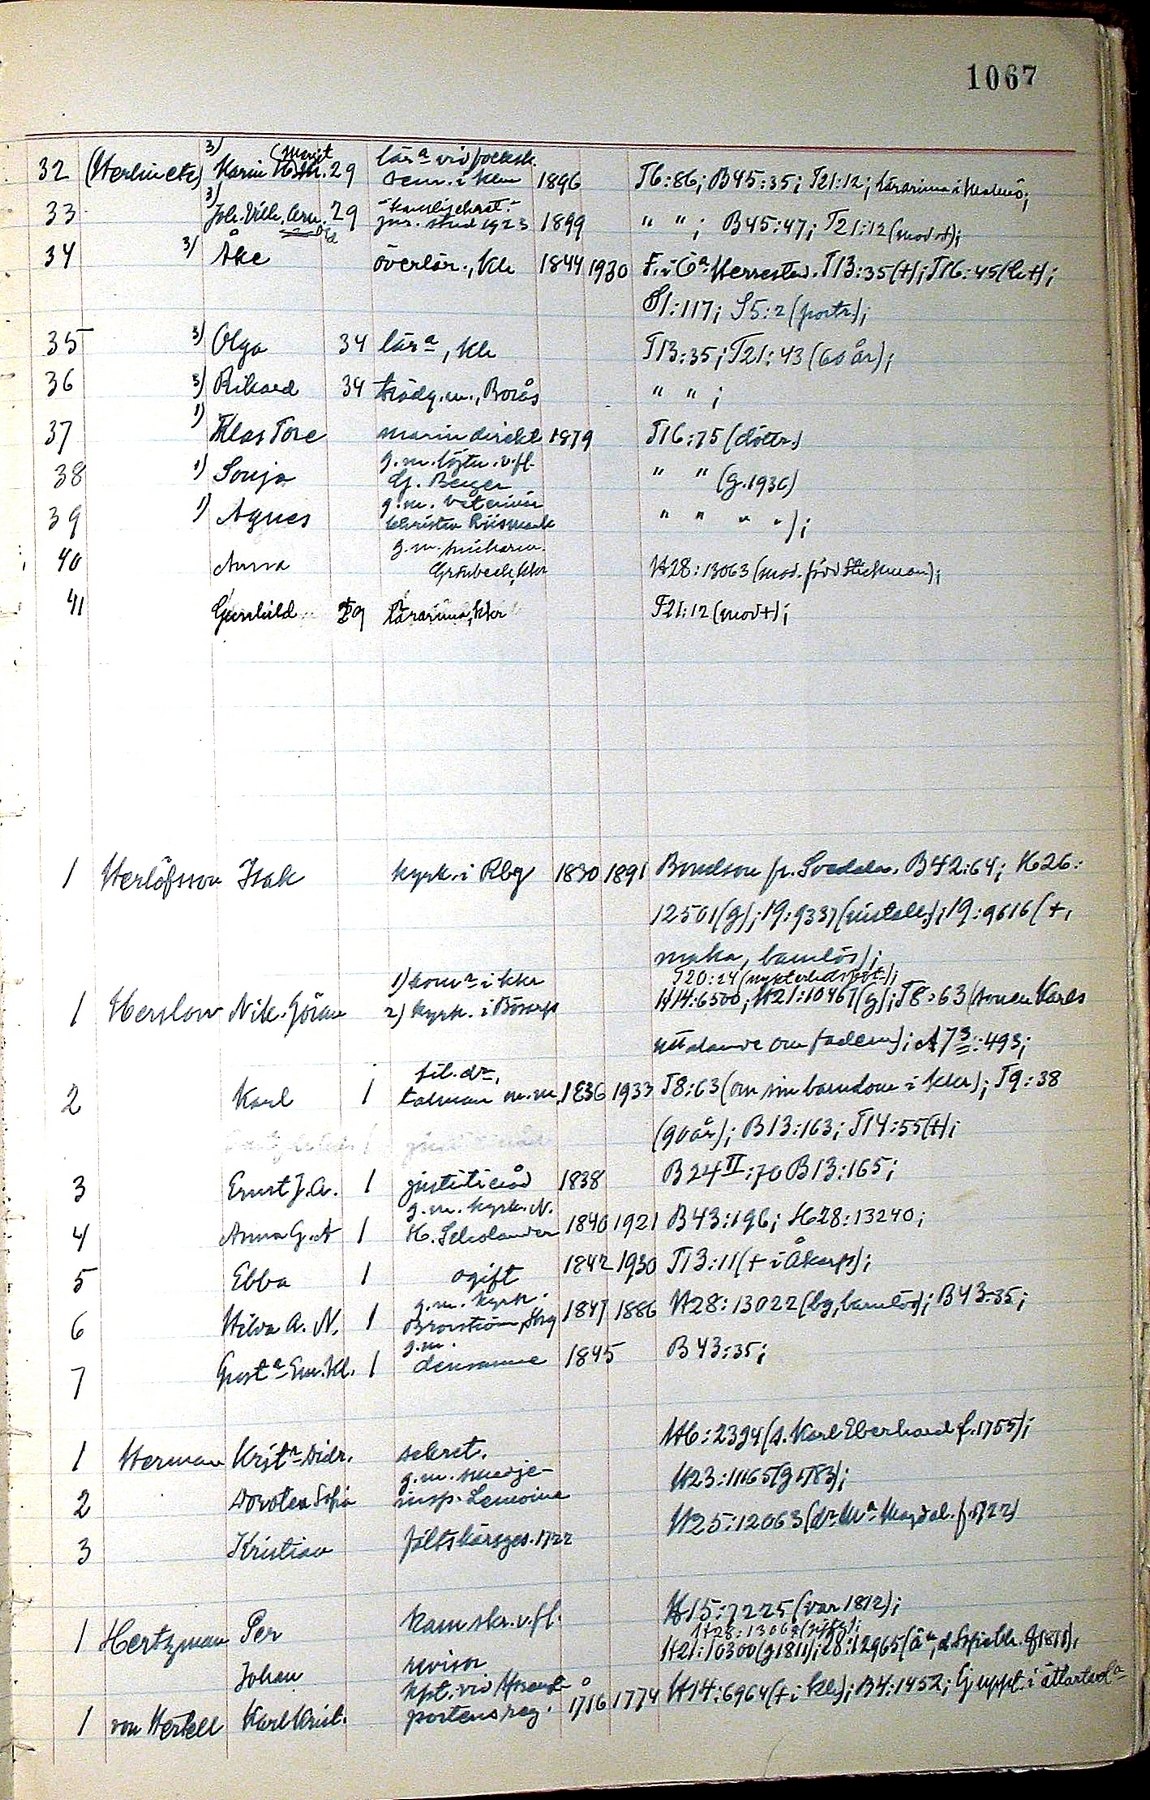 1067
32 (Herlin etc) 3) Karin Margit 29 lär^a vid folksk. sem. i Klm 1896 T6:86; B45:35; T21:12; lärarinna i Malmö;
33 3) Joh. Vilh. 29 jur. stud 1923 1899 " " ; B45:47; T21:12 (mod +);
34 3) Åke överlär., Kh 1844 1930 F. i Ö^a Herrestad. T13:35 (+); T16:45 ;
S1:117; S5:2 (portr.);
35 3) Olga 34 lär^a, Kh T13:35; T21:43 (60 år);
36 3) Rikard 34 trädg.m., Borås " " ;
37 1) Klas Tore marindirekt 1879 T16:75 (döttr.)
38 1) Sonja g.m. löjtn. v. fl. G. Berger " " (g. 1936)
39 1) Agnes g.m. veterinär Christen Riismark " " " " );
40 Anna g.m. Grönbech, Khr H28:13063 (mod. född Stickman);
41 Gunhild 29 lärarinna, Khr T21:12 (mod +);
1 Herlöfsson Isak kyrk. i Rbg 1830 1891 Bondson fr. Svedala. B42:64; H26:
12501 (g); 19:9337 (installe); 19:9616 (+,
maka, barnlös);
T20:24 ;
1 Herslow Nik. Göran 1) kom^r i Khr 2) kyrk. i Bösarp H14:6500; H21:10467 (g); T8:63 (sonen Karls
uttalande om fadern); A7^3:493;
2 Karl 1 fil. dr, talman m.m. 1836 1933 T8:63 (om sin barndom i Khr); T9:38
(90 år); B13:163; T14:55 (+);
3 Ernst J. A. 1 justitieråd 1838 B24^II:70 B13:165;
4 Anna G. A 1 g.m. kyrk. N. H. Scholander 1840 1921 B43:196; H28:13240;
5 Ebba 1 ogift 1842 1930 T13:11 (+ i Åkarp);
6 Hilda A. N. 1 g.m. kyrk. Broström, Hrg 1847 1886 H28:13022 (bg, barnlös); B43:35;
7 Gust^a Em. Kl. 1 g.m. densamme 1845 B43:35;
1 Herman Krist^n Didr. sekret. H6:2394 (s. Karl Eberhard f. 1755);
2 Dorotea Sofia g.m. smedje-insp. Lemoine H23:11165 (g 1783);
3 Kristian fältskärsges. 1722 H25:12063 (dr M^a Magdal. f. 1722)
1 Hertzman Per kamskr. v. fl. H15:7225 (var 1812);
H28:13062 ;
Johan revisor H21:10300 (g 1811); 28:12965 ;
1 von Hertell Karl Krist. kpt. vid 1716 1774 H14:6964 (+ i Kh); B4:1452; Ej uppt. i ättartavl^a